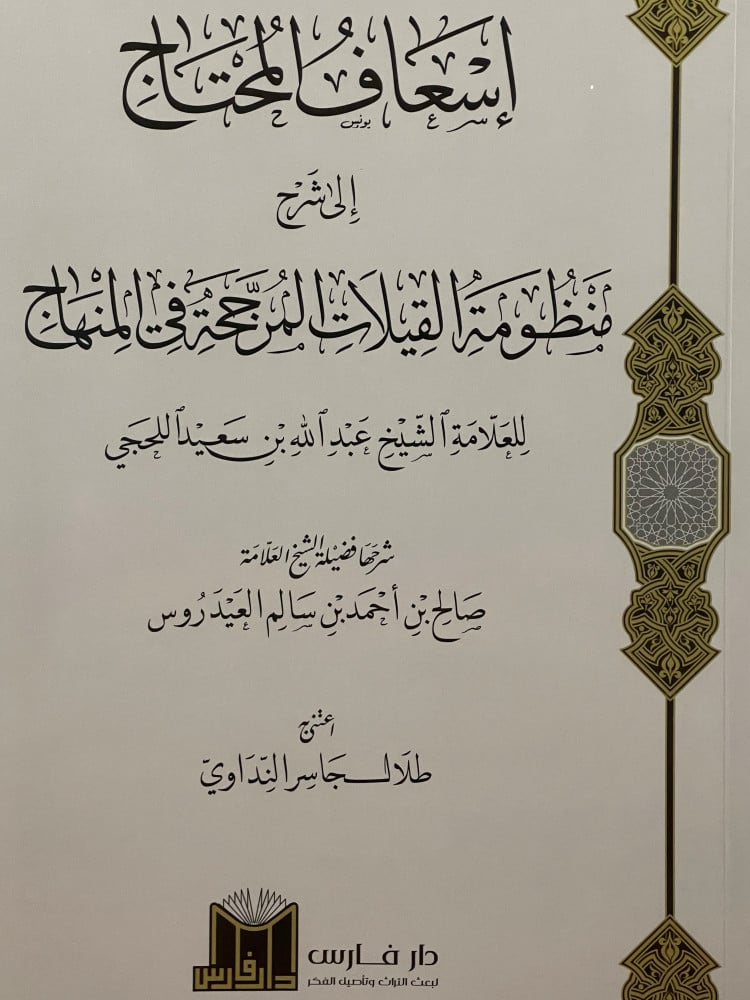 إِسْعَافُ المُحْتَاجِ
يونس
إِلَى شَرْحِ
مَنْظُومَةِ القِيلَاتِ المُرَجَّحَةِ فِي المِنْهَاجِ
لِلعَلَّامَةِ الشَّيْخِ عَبْدِ اللهِ بْنِ سَعِيد اللحجي
شرحها فضيلة الشيخ العلّامة
صَالِح بْنِ أَحْمَد بْنِ سَالِم العَيْدَرُوس
اعتنى به
طَلَال جَاسِر النِّدَاوِيّ
دار فارس
دار فارس
لبعث التراث وتأصيل الفكر